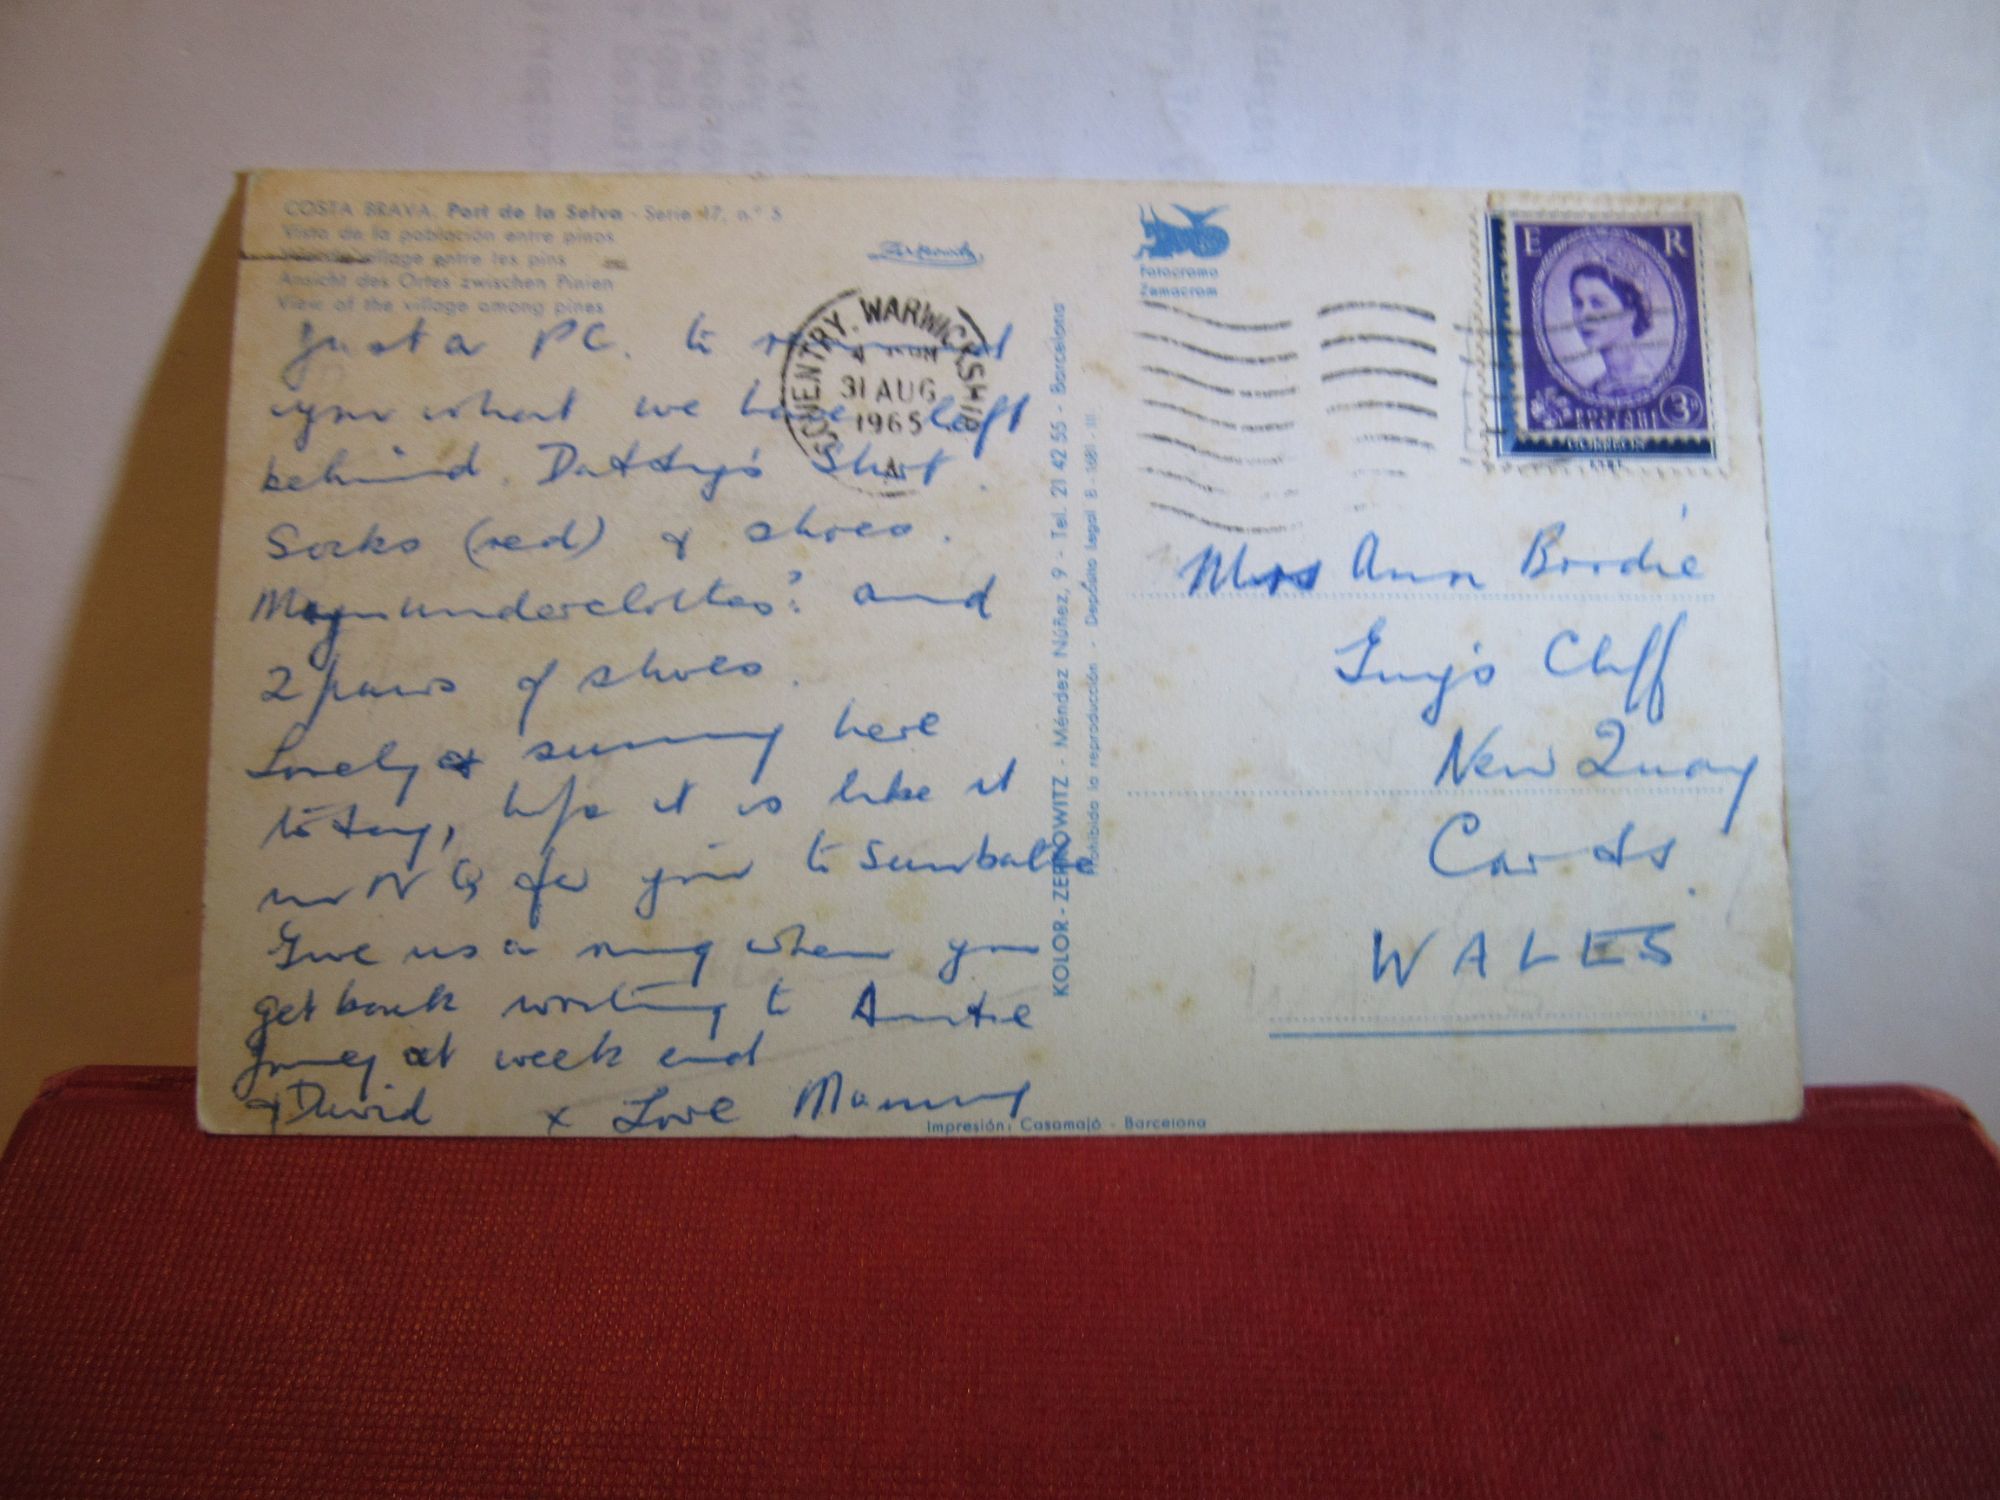 COSTA BRAVA. Port de la Selva - Serie 47, n.° 5
Vista de la población entre pinos
village entre les pins
Ansicht des Ortes zwischen Pinien
View of the village among pines
Just a PC. to remind
you what we have left
behind. Dattys Shirt.
Socks (red) & shoes.
underclothes? and
2 pairs of shoes.
Lovely & sunny here
today, hope it is like it
in N Q for you to Sunbathe
Give us a ring when you
get back writing to Auntie
at week end
& David x Love Mammy
COVENTRY. WARWICKSHIRE
31 AUG
1965
A
KOLOR - ZERKOWITZ - Méndez Núñez, 9 - Tel. 21 42 55 - Barcelona
Prohibida la reproducción - Depósito legal B - 1681 - III
Impresión: Casamajó - Barcelona
Fotocromo
Zemacrom
E R
3D
Mrs Ann Brodie
Guy's Cliff
New Quay
Cards.
WALES